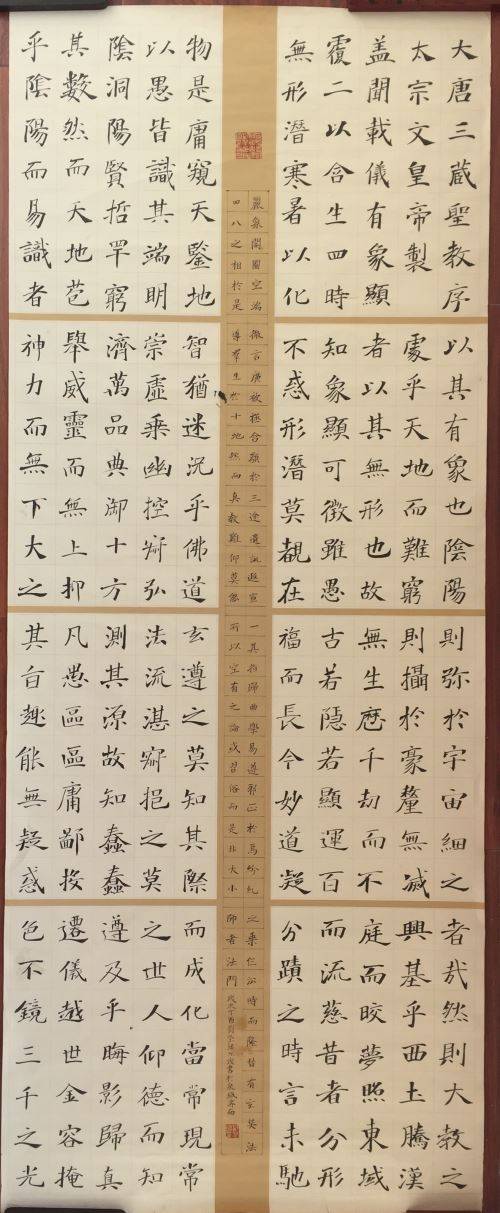 大唐三藏聖教序
太宗文皇帝製
盖聞載儀有象顯
覆二以含生四時
無形潛寒暑以化
物是庸窺天鑒地
以愚皆識其端明
陰洞陽賢哲罕窮
其數然而天地苞
乎陰陽而易識者
以其有象也陰陽
處乎天地而難窮
者以其無形也故
知象顯可徵雖愚
不惑形潛莫覩在
智猶迷況乎佛道
崇虛乘幽控寂弘
濟萬品典御十方
舉威靈而無上抑
神力而無下大之
則弥於宇宙細之
則攝於豪釐無滅
無生歷千劫而不
古若隱若顯運百
福而長今妙道凝
玄遵之莫知其際
法流湛寂挹之莫
測其源故知蠢蠢
凡愚區區庸鄙投
其旨趣能無疑惑
者哉然則大教之
興基乎西土騰漢
庭而皎夢照東域
而流慈昔者分形
分蹟之時言未馳
而成化當常現常
之世人仰德而知
遵及乎晦影歸真
遷儀越世金容掩
色不鏡三千之光
麗象開圖空端
四八之相於是
微言廣被拯含類於三途遺訓遐宣
導群生於十地然而真教難仰莫能
一其指歸曲學易遵邪正於焉紛糾
所以空有之論或習俗而是非大小
之乘仁公時而隆替有玄奘法
師者法門
歲次丁酉